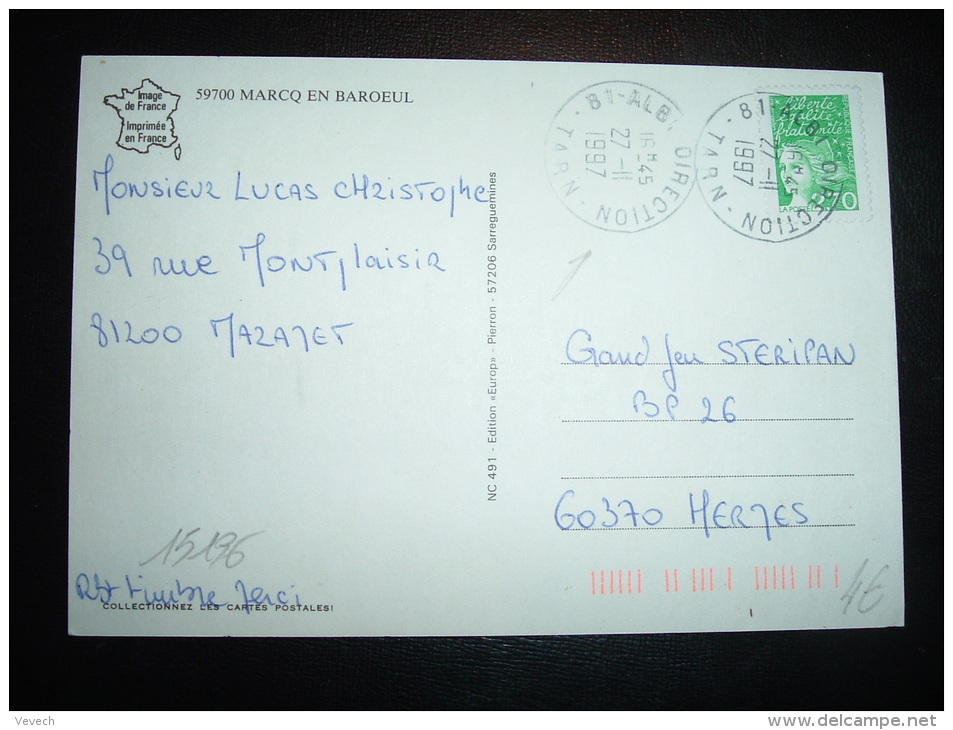 Image
de France
Imprimée
en France
59700 MARCQ EN BAROEUL
MONSIEUR LUCAS CHRISTOPHE
39 rue MONTPLAISIR
81200 MAZAMET
15196
Rbt timbre Merci
COLLECTIONNEZ LES CARTES POSTALES!
NC 491 - Edition «Europ» - Pierron - 57206 Sarreguemines
81-ALBI DIRECTION - TARN -
16H45
27-11
1997
81-ALBI DIRECTION - TARN -
16H45
27-11
1997
liberté
égalité
fraternité
LA POSTE 2,70
Grand Jeu STERIPAN
BP 26
60370 HERMES
4€
Vevech
delcampe.net